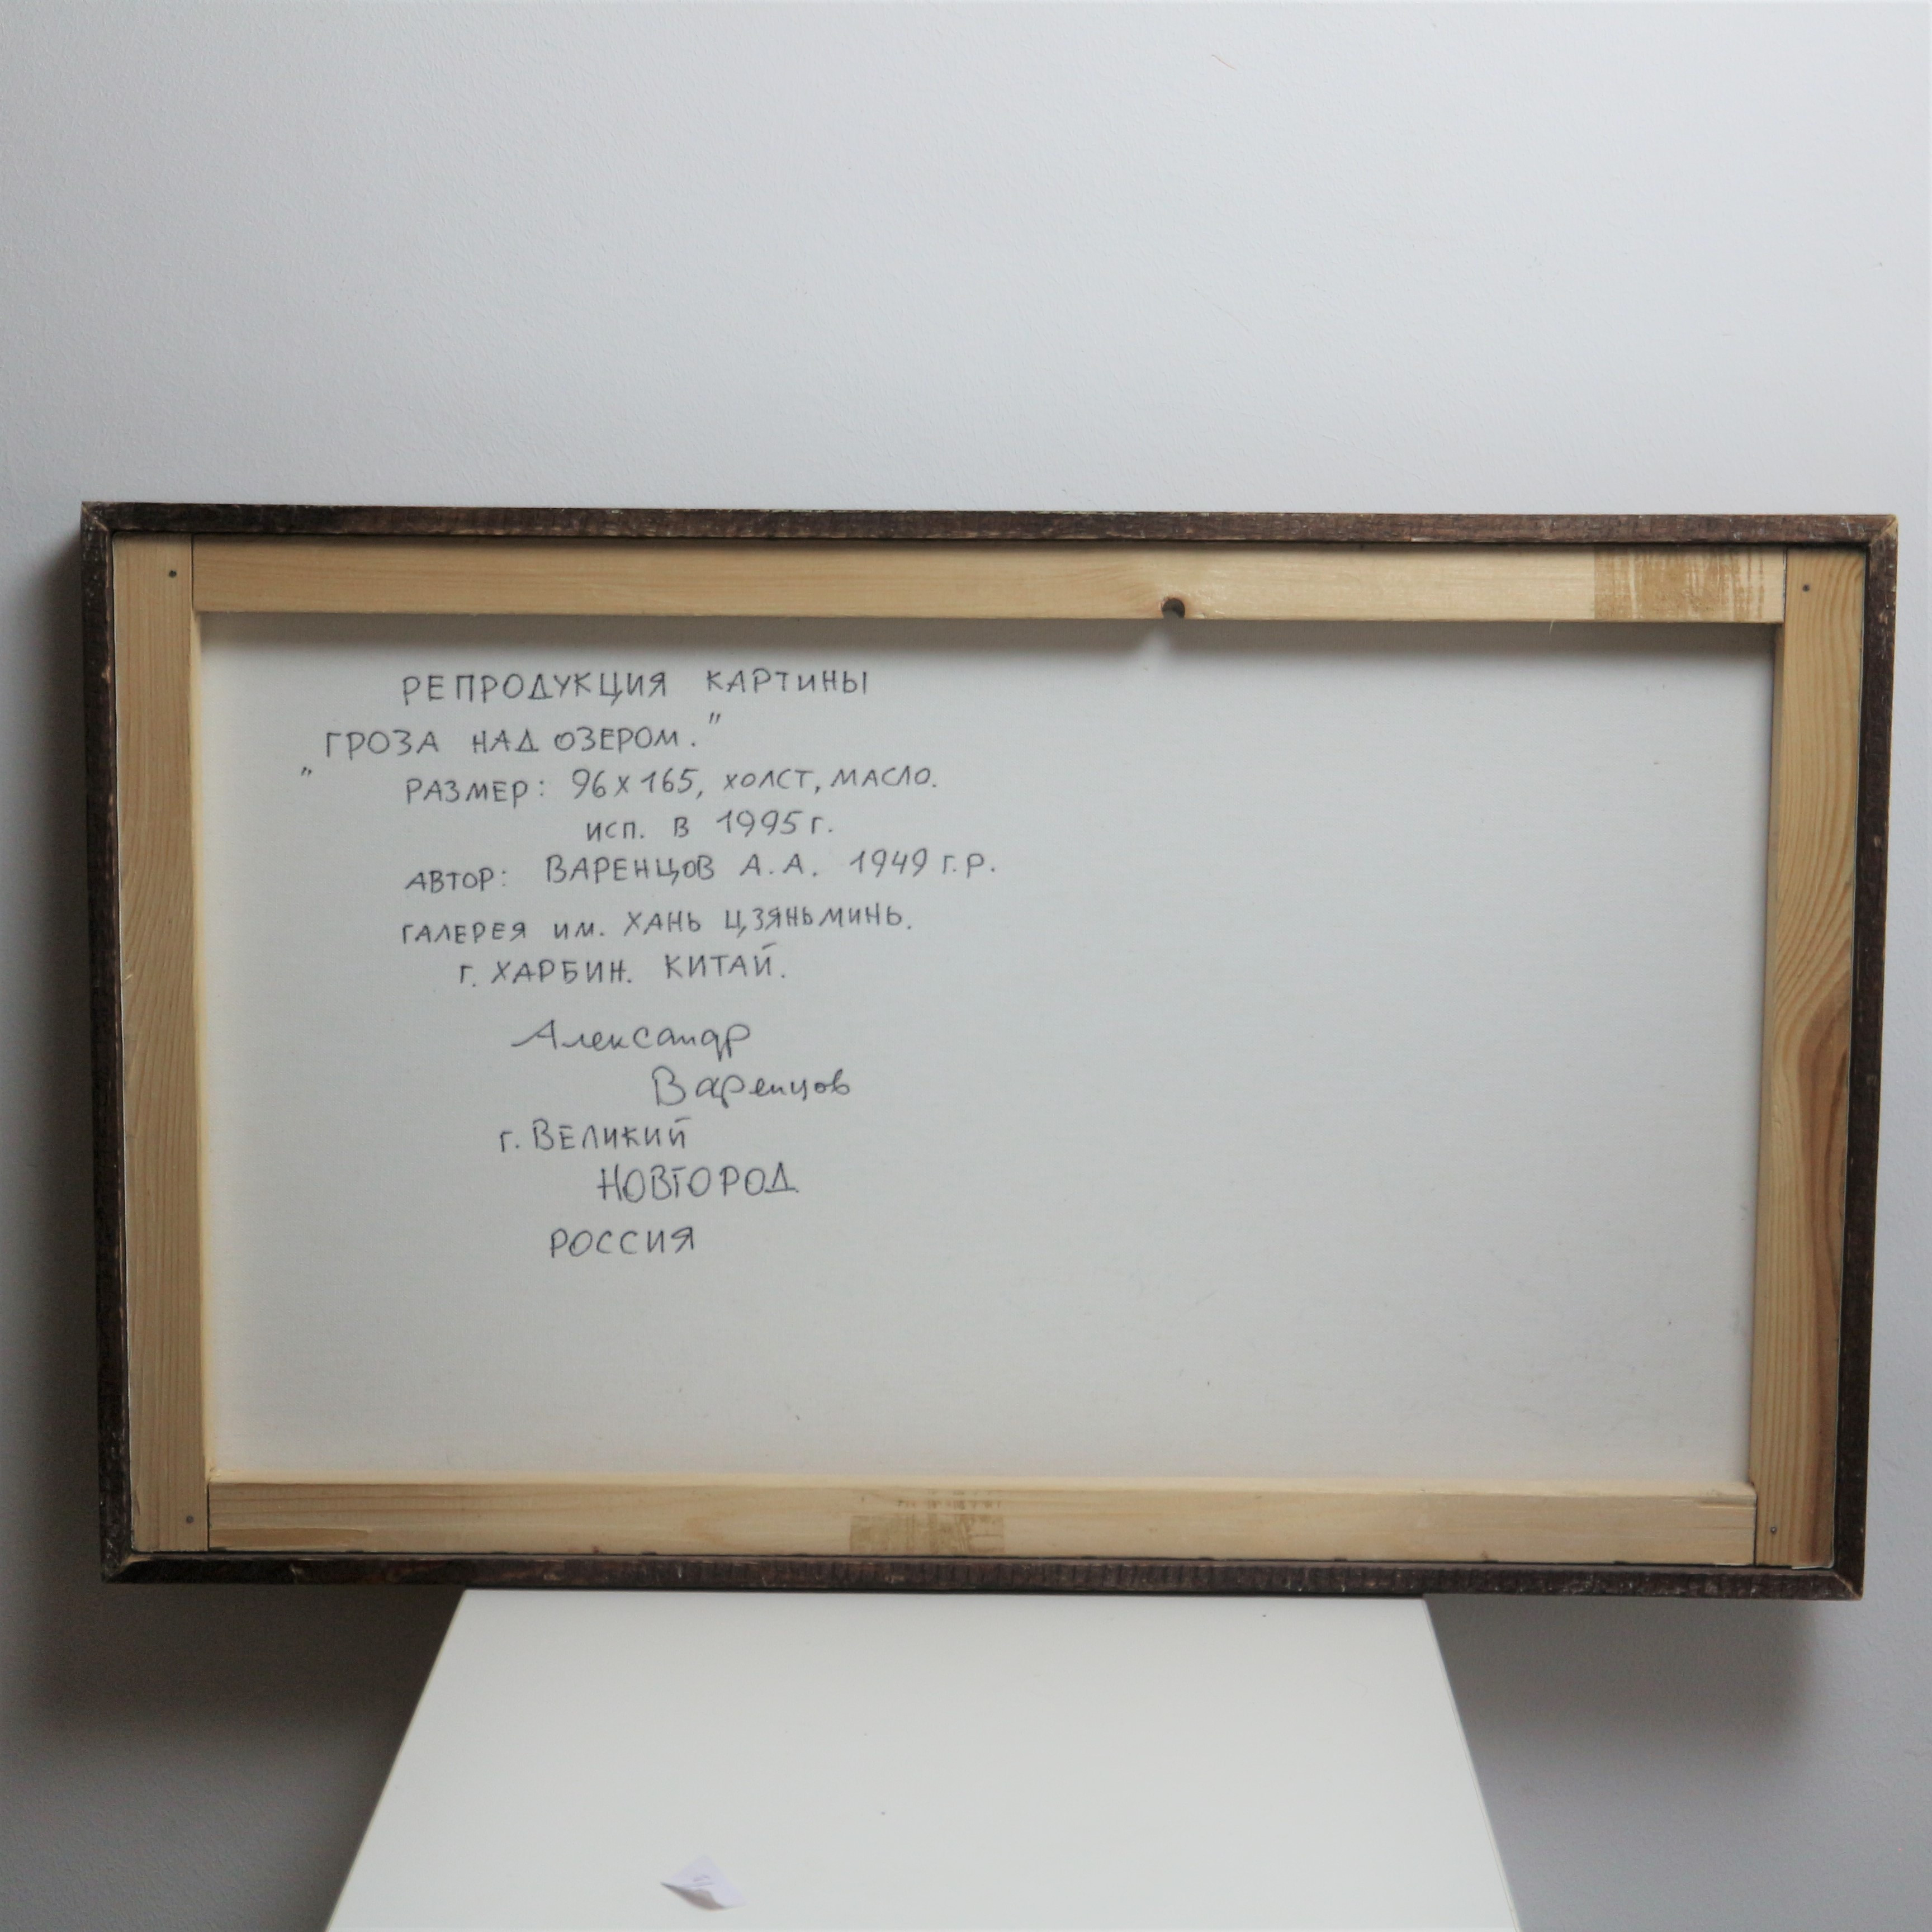 РЕПРОДУКЦИЯ КАРТИНЫ
„ГРОЗА НАД ОЗЕРОМ.”
РАЗМЕР: 96 х 165, ХОЛСТ, МАСЛО.
ИСП. В 1995 г.
АВТОР: ВАРЕНЦОВ А. А. 1949 г.р.
ГАЛЕРЕЯ ИМ. ХАНЬ ЦЗЯНЬМИНЬ.
г. ХАРБИН. КИТАЙ.
Александр
Варенцов
г. ВЕЛИКИЙ
НОВГОРОД
РОССИЯ